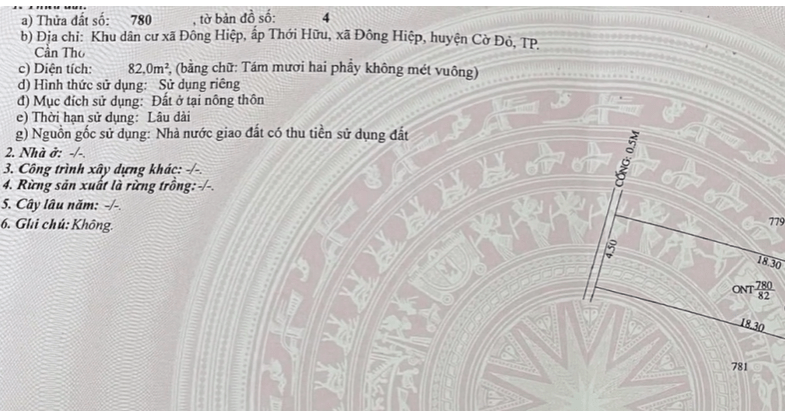 a) Thửa đất số: 780 , tờ bản đồ số: 4
b) Địa chỉ: Khu dân cư xã Đông Hiệp, ấp Thới Hữu, xã Đông Hiệp, huyện Cờ Đỏ, TP.
Cần Thơ
c) Diện tích: 82,0m², (bằng chữ: Tám mươi hai phẩy không mét vuông)
d) Hình thức sử dụng: Sử dụng riêng
đ) Mục đích sử dụng: Đất ở tại nông thôn
e) Thời hạn sử dụng: Lâu dài
g) Nguồn gốc sử dụng: Nhà nước giao đất có thu tiền sử dụng đất
2. Nhà ở: -/-.
3. Công trình xây dựng khác: -/-.
4. Rừng sản xuất là rừng trồng: -/-.
5. Cây lâu năm: -/-.
6. Ghi chú: Không.
CỐNG: 0.5M
779
4.50
18.30
ONT 780
82
18.30
781